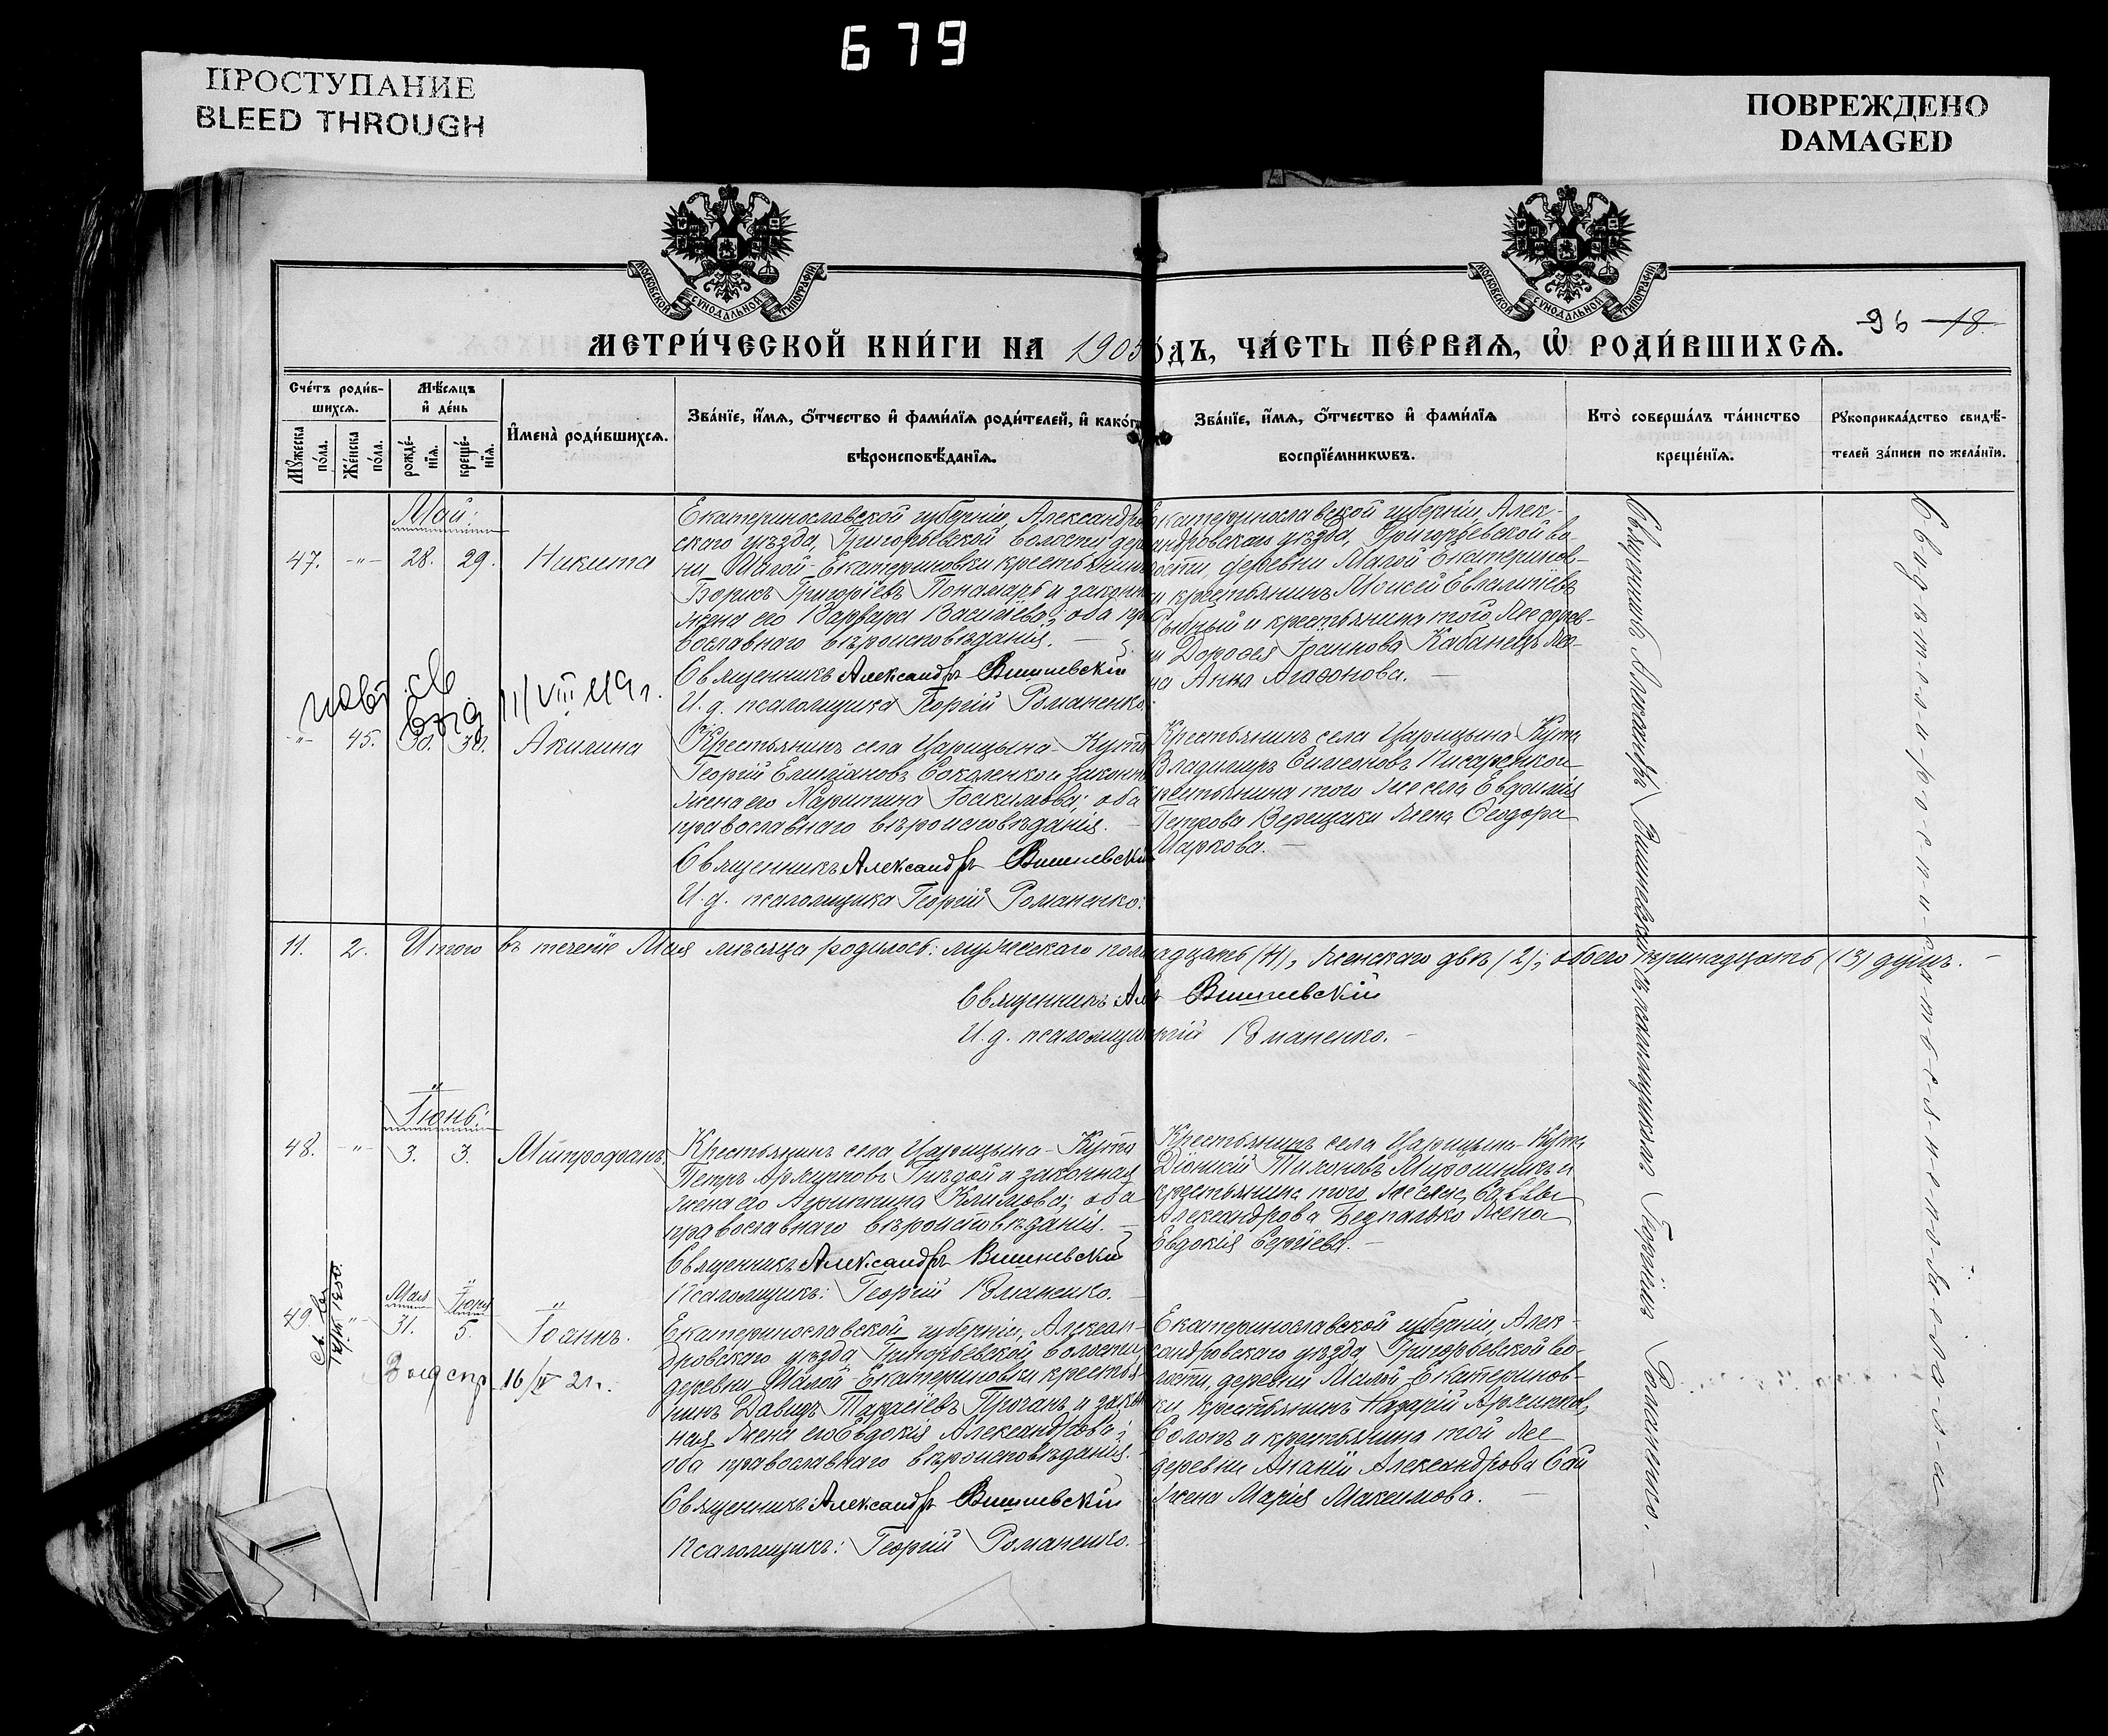 679
ПРОСТУПАНИЕ
BLEED THROUGH
ПОВРЕЖДЕНО
DAMAGED
МОСКОВСКОЙ СѴНОДАЛЬНОЙ ТИПОГРАФІИ
МОСКОВСКОЙ СѴНОДАЛЬНОЙ ТИПОГРАФІИ
96 18
МЕТРИ́ЧЕСКОЙ КНИ́ГИ НА 1905
О́ДЪ, ЧА́СТЬ ПЕ́РВАѦ, Ѡ҆ РОДИ́ВШИХСѦ.
Сче́тъ роди́в-
шихсѧ.
Мꙋ́жеска по́ла.
Же́нска по́ла.
Мѣ́сѧцъ
и҆ де́нь
рожде́-нїѧ.
креще́-нїѧ.
И҆мена̀ роди́вшихсѧ.
Зва́нїе, и҆́мѧ, ѻ҆́тчество и҆ фами́лїѧ роди́телей, и҆ како́г
вѣроисповѣ́данїѧ.
Зва́нїе, и҆́мѧ, ѻ҆́тчество и҆ фами́лїѧ
воспрїе́мникѡвъ.
Кто̀ соверша́лъ та́инство
креще́нїѧ.
Рꙋкоприкла́дство свидѣ́-
телей за́писи по жела́нїю.
Май:
47. -"- 28. 29. Никита
Екатеринославской губерніи, Александров
скаго уѣзда, Григорьевской волости дере
ни Малой-Екатериновки крестьянин
Борисъ Григоріевъ Понамарь и законн
жена его Варвара Васильева; оба пра
вославнаго вѣроисповѣданія. —
Священникъ Александръ Вишневскій
И. д. псаломщика Георгій Романенко.
Екатеринославской губерніи, Алек-
андровскаго уѣзда, Григорьевской во-
лости, деревни Малой Екатеринов-
и крестьянинъ Моисей Евлампіевъ
и крестьянина той же дерев-
и Дорофея Іоаннова Кабанецъ же-
на Анна Агафонова. —
11/VIII 49 г.
-"- 45. 30. 30. Акилина
Крестьянинъ села Царицына-Кута
Георгій Соколенко и законн
жена его Харитина Іоакимова; оба
православнаго вѣроисповѣданія. —
Священникъ Александръ Вишневскій
И. д. псаломщика Георгій Романенко.
Крестьянинъ села Царицына Кута
Владимиръ Симеоновъ Писаренко и
крестьянина того же села Евдокима
Петрова Верещаки жена Ѳеодора
Маркова. —
11. 2. Итого въ теченіе Мая мѣсяца родилось: мужескаго пола
адцать (11), женскаго двѣ (2); обоего тринадцать (13) душъ. —
Священникъ Ал Вишневскій
И. д. псаломщи ргій Романенко. —
Іюнь:
48. -"- 3. 3. Митрофанъ.
Крестьянинъ села Царицына-Кута
Петръ Гнѣдой и законная
жена его Агриппина Климова; оба
православнаго вѣроисповѣданія. —
Священникъ Александръ Вишневскій
Псаломщикъ: Георгій Романенко. —
Крестьянинъ села Царицына-Кута
Діонисій Тихоновъ Мирошникъ и
крестьянина того же села Саввы
Александрова Безпалько жена
Евдокія Сергіева. —
Мая Іюня
49. -"- 31. 5. Іоаннъ.
16/IV 21 г.
Екатеринославской губерніи, Алексан-
дровскаго уѣзда, Григорьевской волости
деревни Малой Екатериновки крестья-
нинъ Давидъ и закон
ная жена его Евдокія Александрова;
оба православнаго вѣроисповѣданія.
Священникъ Александръ Вишневскій
Псаломщикъ: Георгій Романенко.
Екатеринославской губерніи, Алек-
сандровскаго уѣзда Григорьевской во-
лости, деревни Малой Екатеринов-
ки крестьянинъ Назарій
и крестьянина той же
деревни Ананіи Александрова
жена Марія Максимова. —
Священникъ Александръ Вишневскій съ псаломщикомъ Георгіемъ Романенко. —